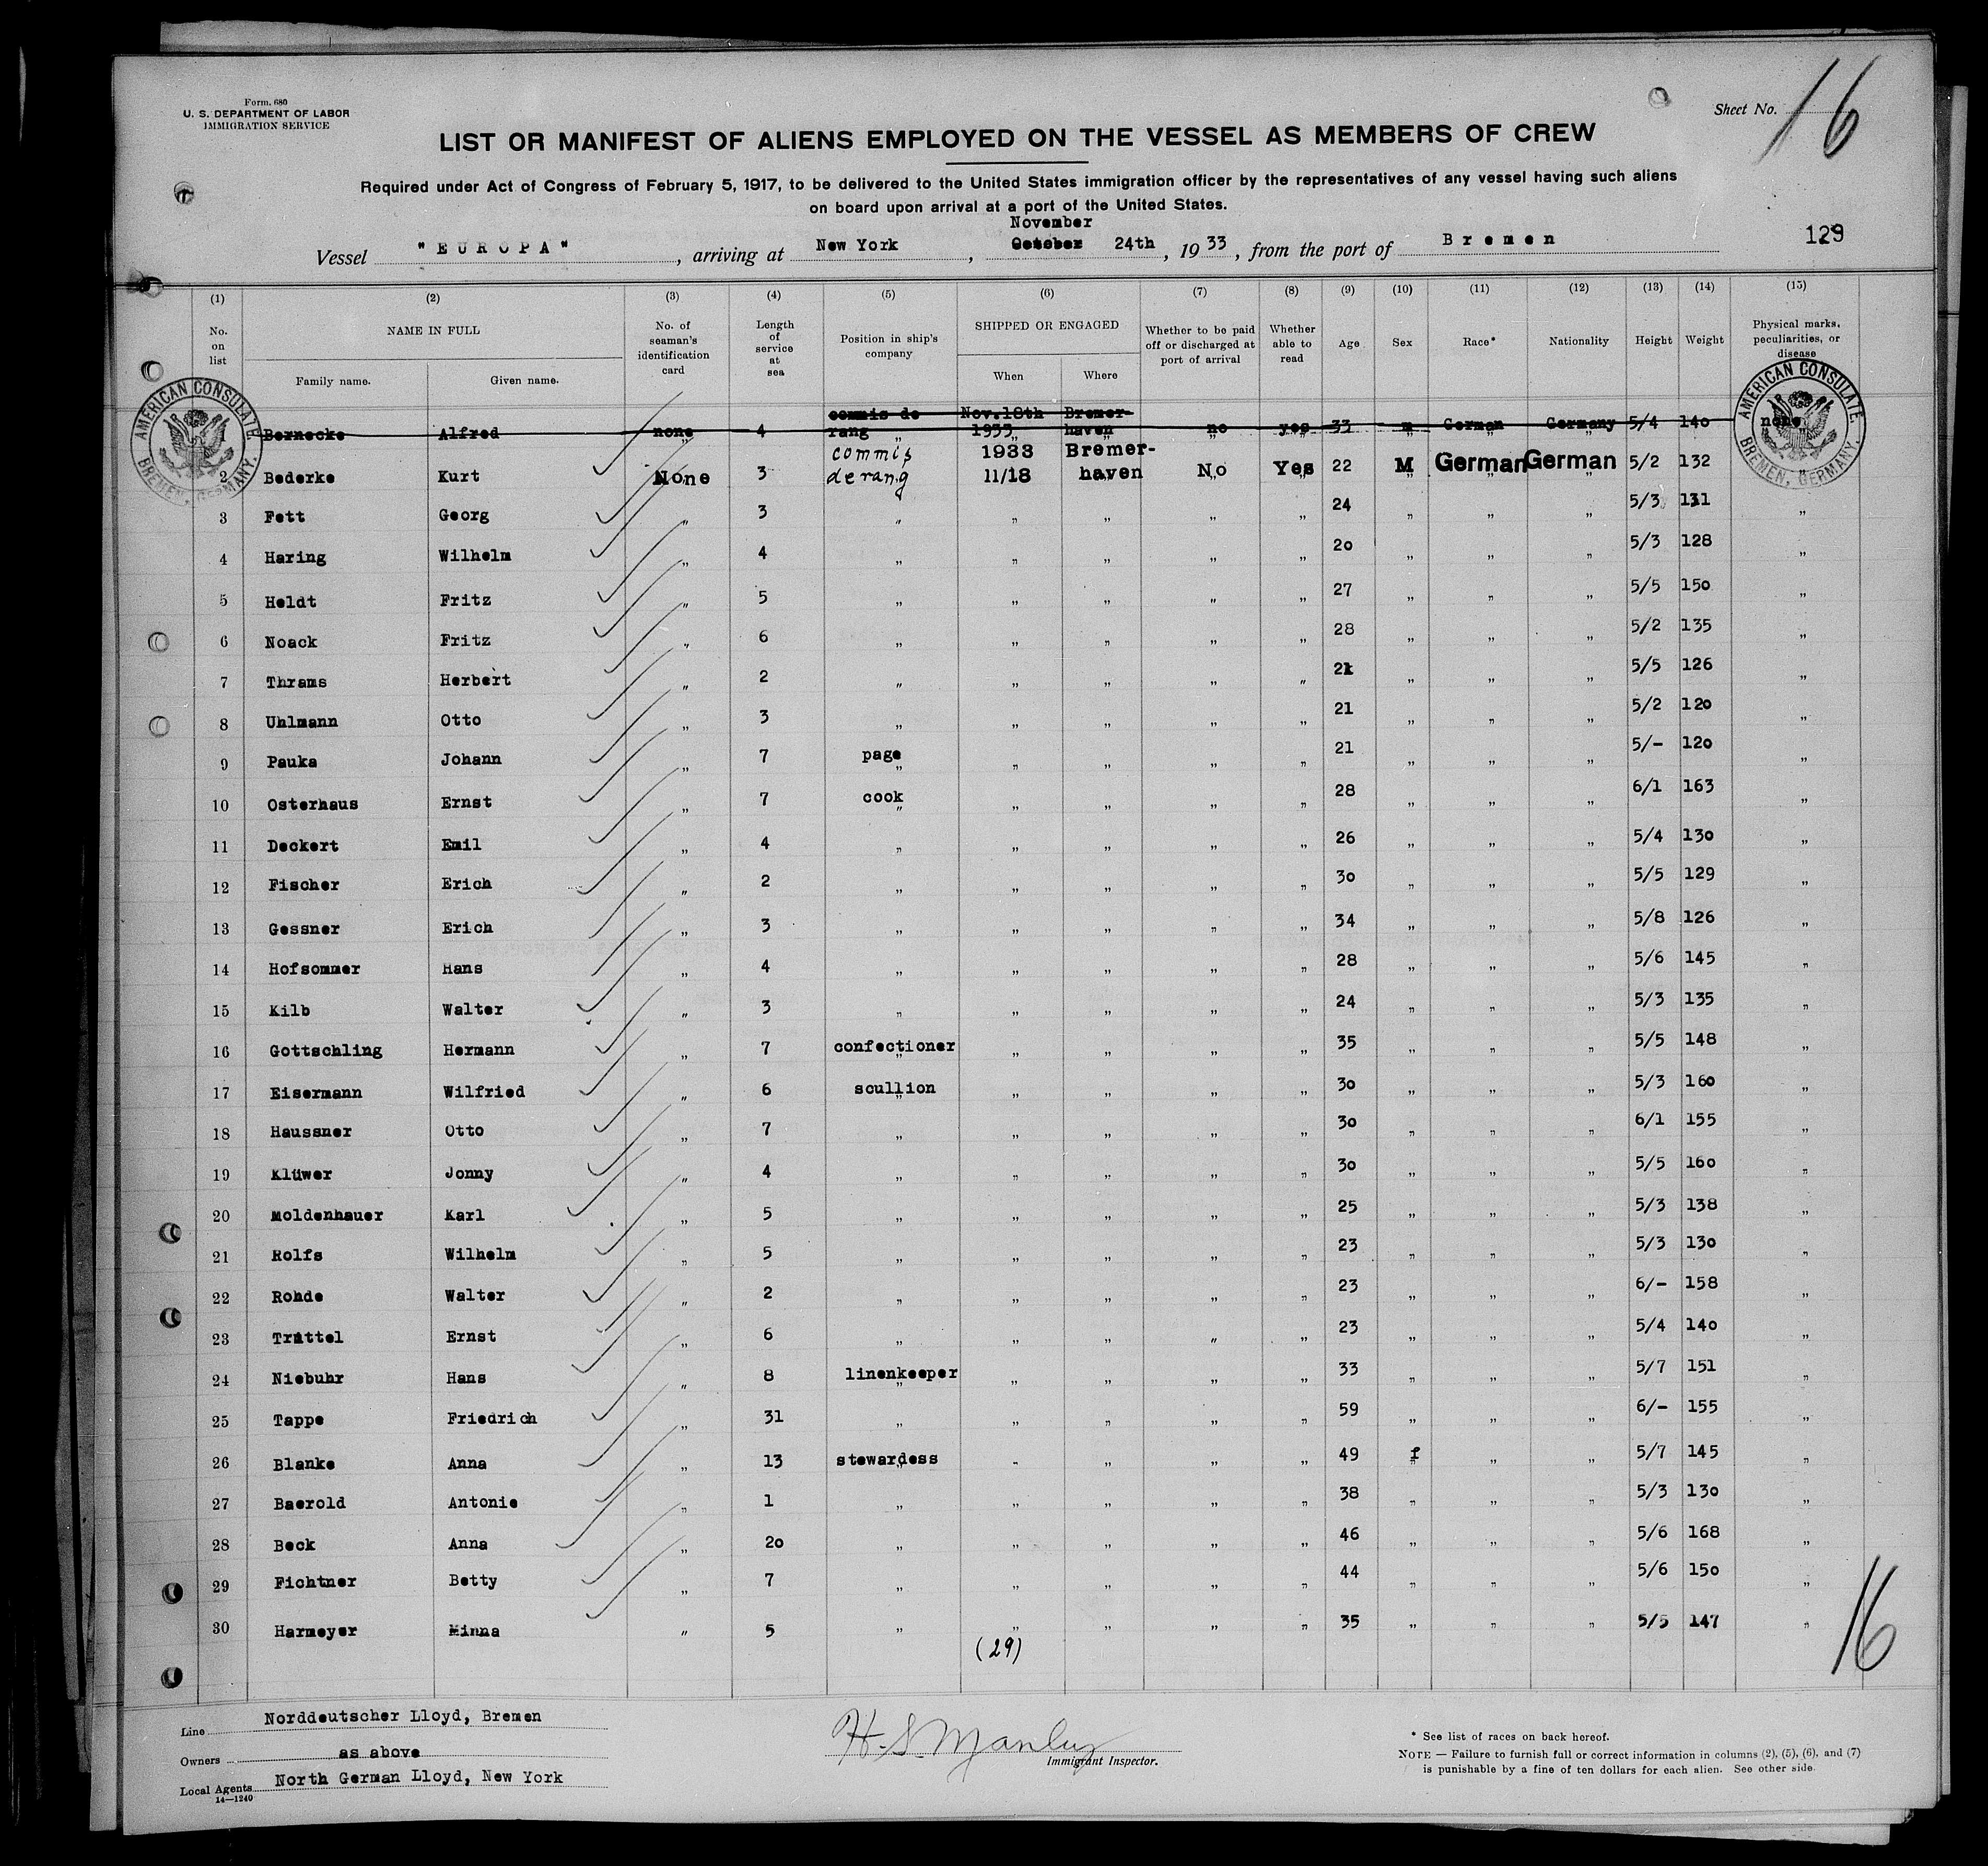 Form. 680
U. S. DEPARTMENT OF LABOR
IMMIGRATION SERVICE
Sheet No. 16
LIST OR MANIFEST OF ALIENS EMPLOYED ON THE VESSEL AS MEMBERS OF CREW
Required under Act of Congress of February 5, 1917, to be delivered to the United States immigration officer by the representatives of any vessel having such aliens
on board upon arrival at a port of the United States.
November
Vessel "EUROPA", arriving at New York, October 24th, 1933, from the port of Bremen
129
(1) (2) (3) (4) (5) (6) (7) (8) (9) (10) (11) (12) (13) (14) (15)
No. on list NAME IN FULL Family name. Given name. No. of seaman's identification card Length of service at sea Position in ship's company SHIPPED OR ENGAGED When Where Whether to be paid off or discharged at port of arrival Whether able to read Age Sex Race* Nationality Height Weight Physical marks, peculiarities, or disease
AMERICAN CONSULATE. BREMEN, GERMANY.
AMERICAN CONSULATE. BREMEN, GERMANY.
commis de Nov.18th Bremer-
Bernecke Alfred none 4 rang " 1933 " haven " no " yes 33 m German " Germany 5/4 140 none
commis 1933 Bremer-
2 Bederke Kurt None 3 de rang 11/18 haven No Yes 22 M German German 5/2 132 "
3 Fett Georg " 3 " " " " " 24 " " " 5/3 131 "
4 Haring Wilhelm " 4 " " " " " 20 " " " 5/3 128 "
5 Heldt Fritz " 5 " " " " " 27 " " " 5/5 150 "
6 Noack Fritz " 6 " " " " " 28 " " " 5/2 135 "
7 Thrams Herbert " 2 " " " " " " " " 5/5 126 "
8 Uhlmann Otto " 3 " " " " " 21 " " " 5/2 120 "
9 Pauka Johann " 7 page " " " " 21 " " " 5/- 120 "
10 Osterhaus Ernst " 7 cook " " " " 28 " " " 6/1 163 "
11 Deckert Emil " 4 " " " " " 26 " " " 5/4 130 "
12 Fischer Erich " 2 " " " " " 30 " " " 5/5 129 "
13 Gessner Erich " 3 " " " " " 34 " " " 5/8 126 "
14 Hofsommer Hans " 4 " " " " " 28 " " " 5/6 145 "
15 Kilb Walter " 3 " " " " " 24 " " " 5/3 135 "
16 Gottschling Hermann " 7 confectioner " " " " 35 " " " 5/5 148 "
17 Eisermann Wilfried " 6 scullion " " " " 30 " " " 5/3 160 "
18 Haussner Otto " 7 " " " " " 30 " " " 6/1 155 "
19 Klüwer Jonny " 4 " " " " " 30 " " " 5/5 160 "
20 Moldenhauer Karl " 5 " " " " " 25 " " " 5/3 138 "
21 Rolfs Wilhelm " 5 " " " " " 23 " " " 5/3 130 "
22 Rohde Walter " 2 " " " " " 23 " " " 6/- 158 "
23 Ernst " 6 " " " " " 23 " " " 5/4 140 "
24 Niebuhr Hans " 8 linenkeeper " " " " 33 " " " 5/7 151 "
25 Tappe Friedrich " 31 " " " " " 59 " " " 6/- 155 "
26 Blanke Anna " 13 stewardess " " " " 49 f " " 5/7 145 "
27 Baerold Antonie " 1 " " " " " 38 " " " 5/3 130 "
28 Beck Anna " 20 " " " " " 46 " " " 5/6 168 "
29 Fichtner Betty " 7 " " " " " 44 " " " 5/6 150 "
30 Harmeyer Minna " 5 " " " " " 35 " " " 5/5 147 "
(29)
16
Line Norddeutscher Lloyd, Bremen
Owners as above
Local Agents North German Lloyd, New York
14—1240
H. S. Manley
Immigrant Inspector.
* See list of races on back hereof.
NOTE — Failure to furnish full or correct information in columns (2), (5), (6), and (7)
is punishable by a fine of ten dollars for each alien. See other side.